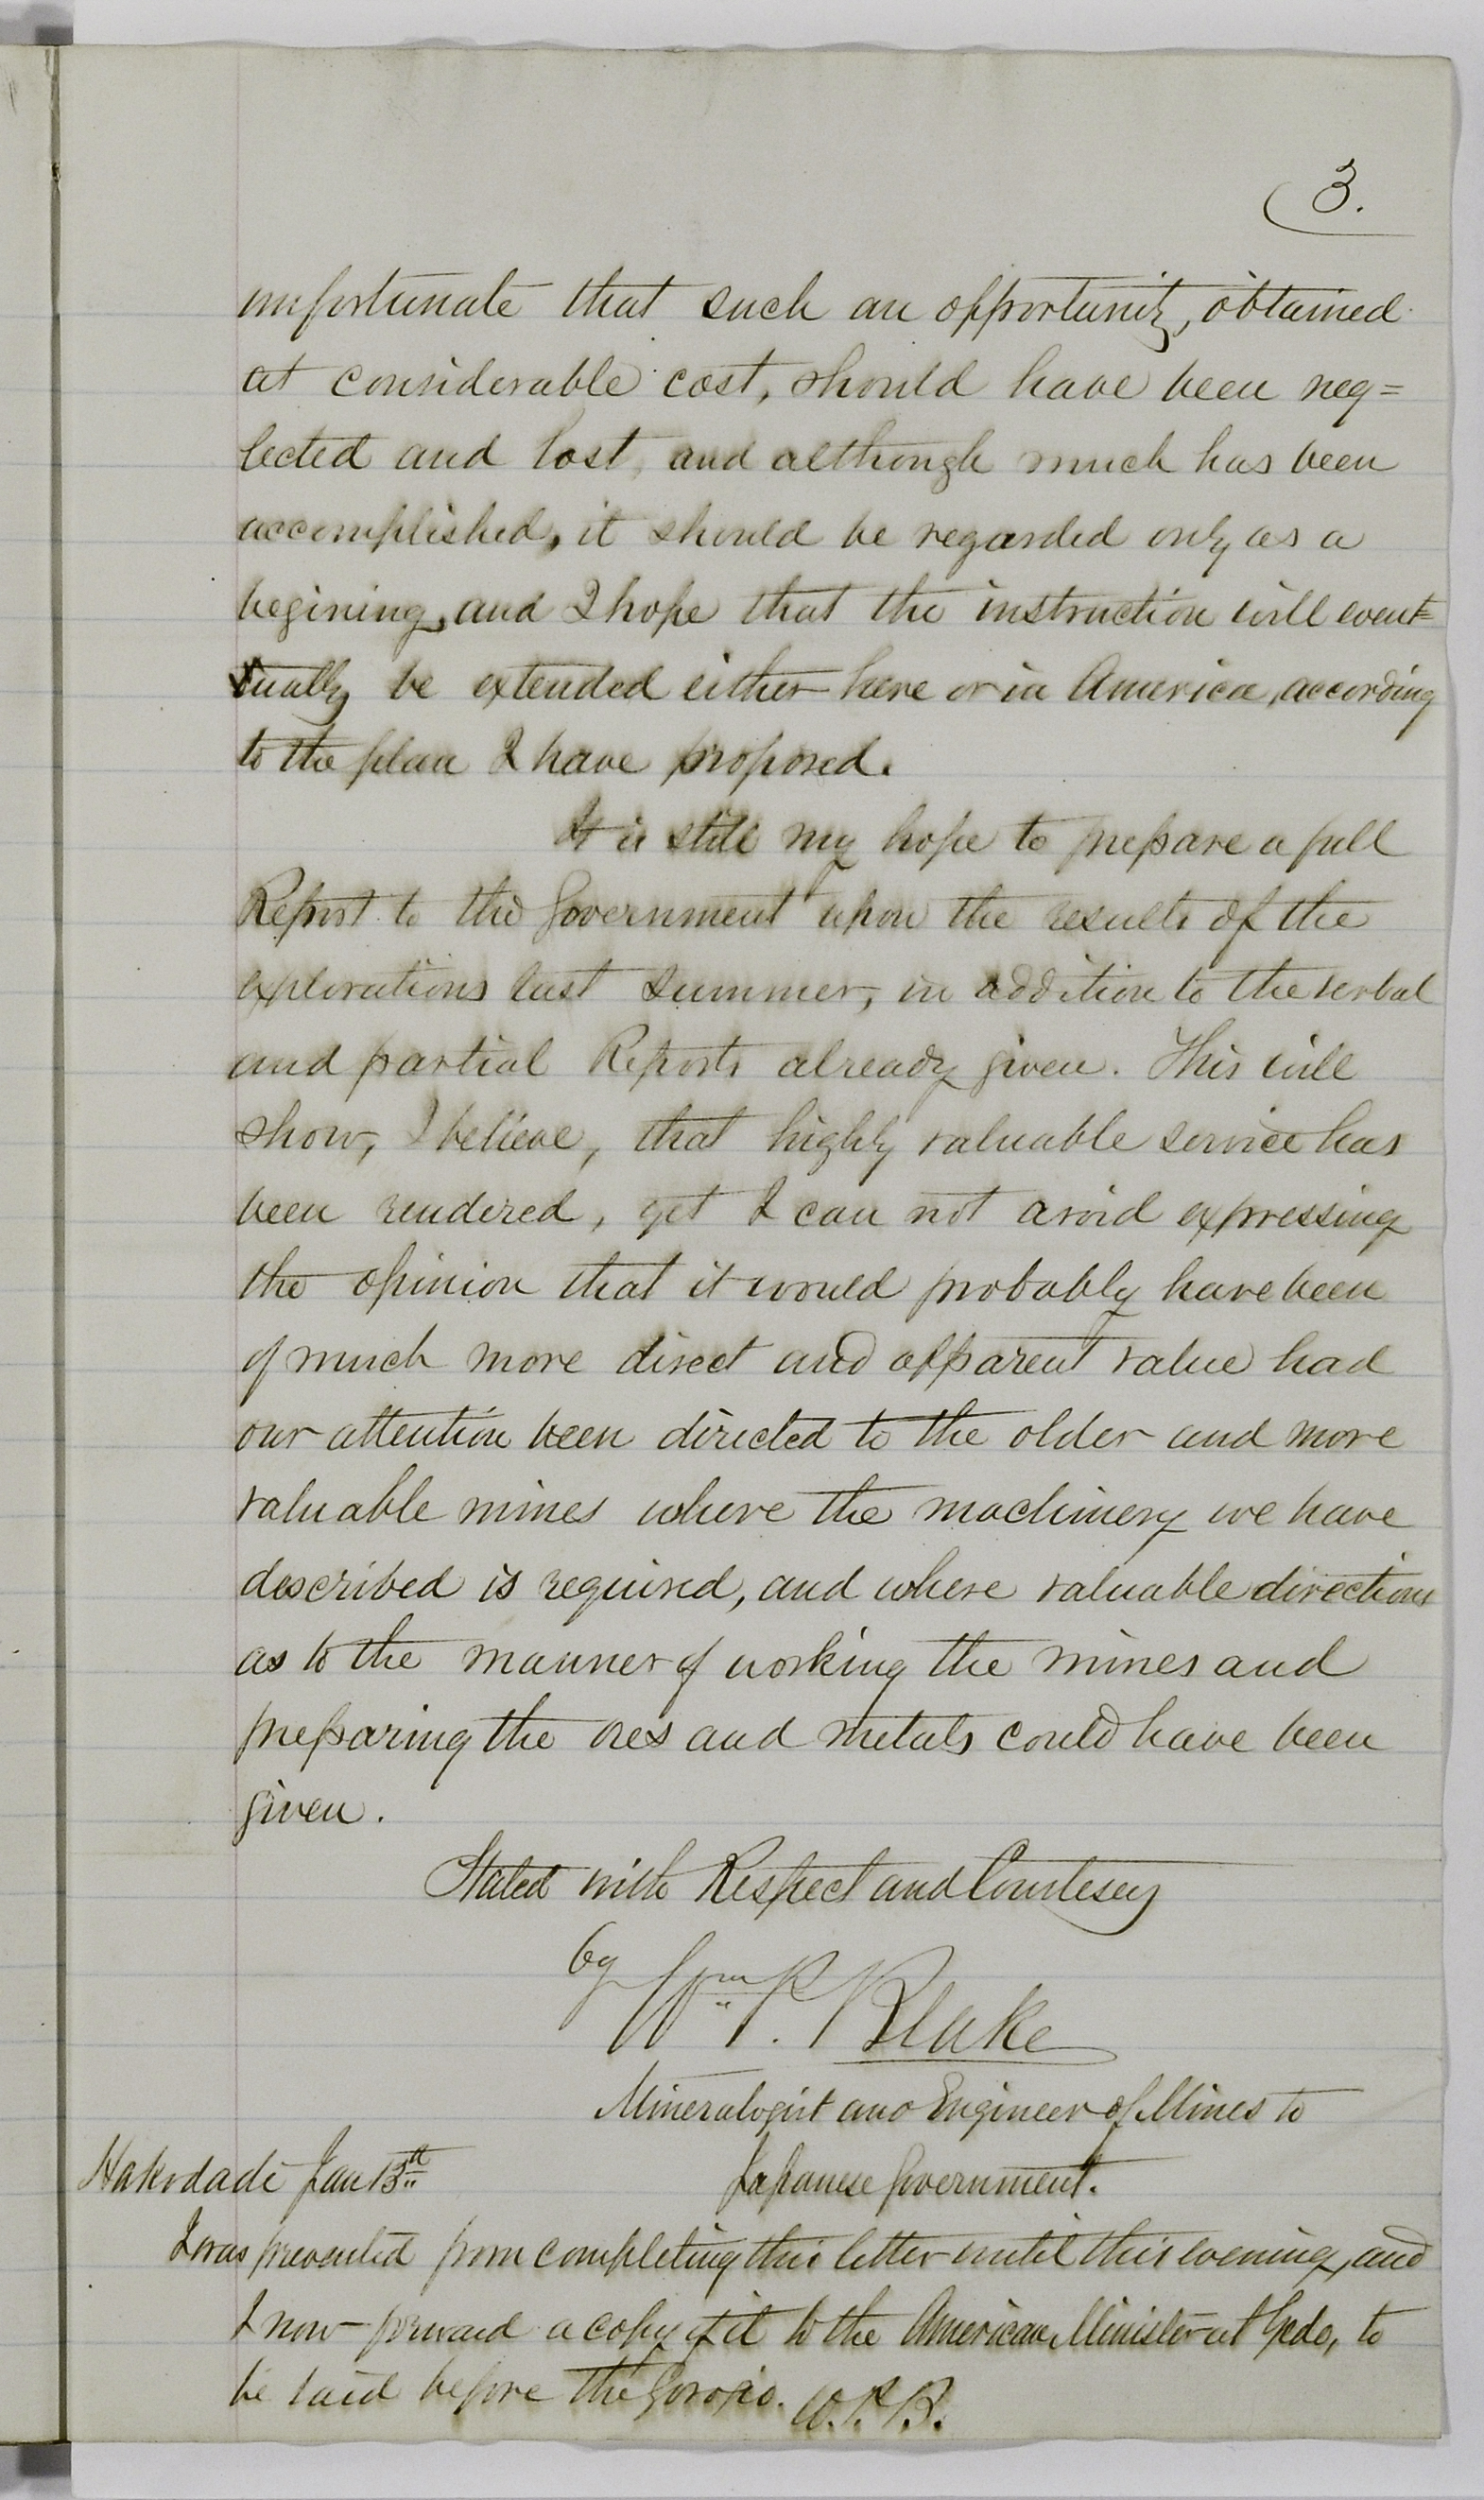 3.
unfortunate that such an opportunity, obtained
at considerable cost, should have been neg=
lected and lost, and although much has been
accomplished, it should be regarded only as a
begining, and I hope that the instruction will event=
ually be extended either here or in America, according
to the plan I have proposed.
It is still my hope to prepare a full
Report to the Government upon the results of the
explorations last summer, in addition to the verbal
and partial Reports already given. This will
show, I believe, that highly valuable service has
been rendered, yet I can not avoid expressing
the opinion that it would probably have been
of much more direct and apparent value had
our attention been directed to the older and more
valuable mines where the machinery we have
described is required, and where valuable directions
as to the manner of working the mines and
preparing the ores and metals could have been
given.
Stated with Respect and Courtesey
by Wm P. Blake
Mineralogist and Engineer of Mines to
Japanese Government.
Hakodadi Jan 13th
I was prevented from completing this letter until this evening, and
I now forward a copy of it to the American Minister at Yedo, to
be laid before the Gorogio. W.P.B.